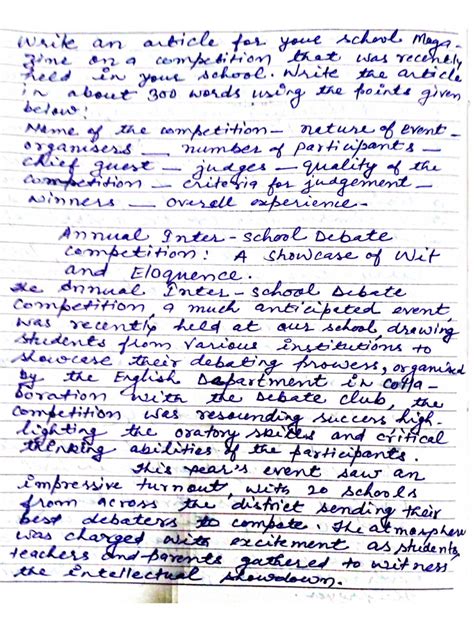 Write an article for your school Maga-
zine on a competition that was recently
held in your school. Write the article
in about 300 words using the points given
below:
Name of the competition - nature of event -
organisers - number of participants -
chief guest - judges - quality of the
competition - criteria for judgement -
winners - overall experience -
Annual Inter-school Debate
Competition: A showcase of Wit
and Eloquence.
Annual Inter-school Debate
Competition, a much anticipated event,
was recently held at our school, drawing
students from various institutions to
showcase their debating prowess, organised
by the English Department in colla-
boration with the Debate club, the
competition was resounding success high-
lighting the oratory skills and critical
thinking abilities of the participants.
This year's event saw an
impressive turnout, with 20 schools
from across the district sending their
best debaters to compete. The atmosphere
was charged with excitement as students,
teachers and parents gathered to witness
the intellectual showdown.